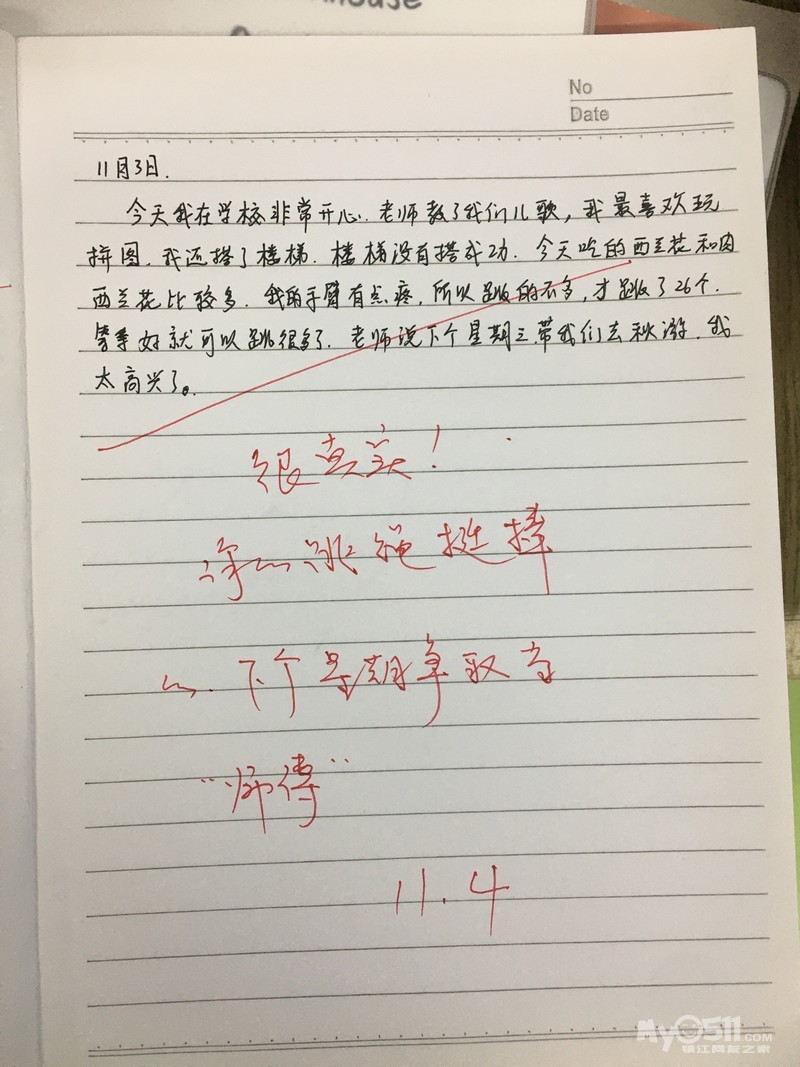 house
No
Date
11月3日.
今天我在学校非常开心.老师教了我们儿歌,我最喜欢玩
拼图.我还搭了楼梯.楼梯没有搭成功.今天吃的西兰花和肉
西兰花比较多.我的手臂有点疼,所以跳的不多,才跳了26个.
等手好就可以跳很多了.老师说下个星期三带我们去秋游.我
太高兴了。
很真实!
跳绳挺棒
下个星期争取当
“师傅”
11.4
My0511.COM
镇江网友之家